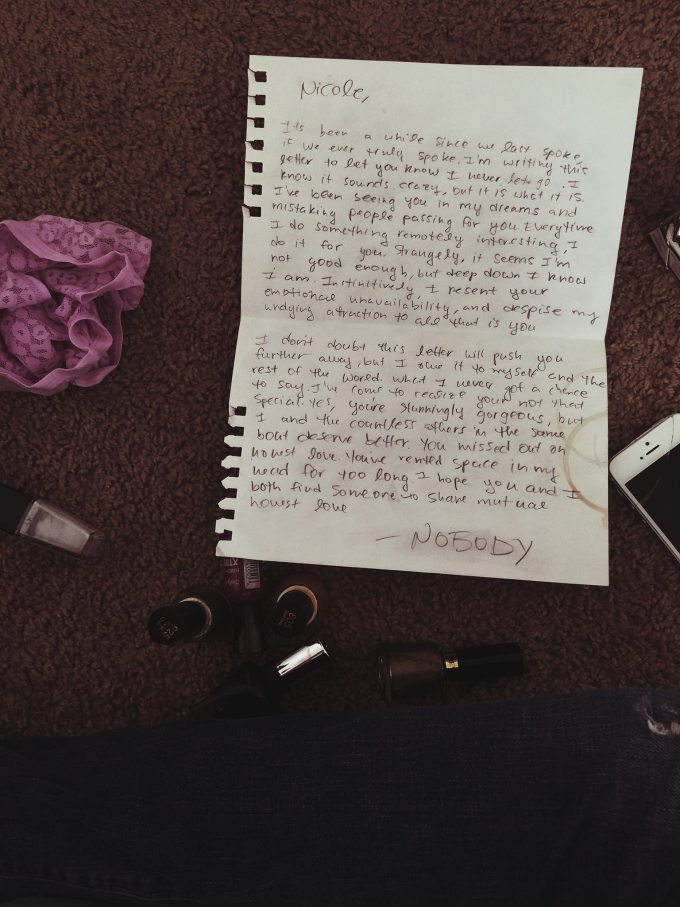 Nicole,
Its been a while since we last spoke,
if we ever truly spoke. I'm writing this
letter to let you know I never let go. I
know it sounds crazy, but it is what it is.
I've been seeing you in my dreams and
mistaking people passing for you. Everytime
I do something remotely interesting, I
do it for you. Strangely, it seems I'm
not good enough, but deep down I know
I am. Instinctively, I resent your
emotional unavailability, and despise my
undying attraction to all that is you
I don't doubt this letter will push you
further away, but I owe it to myself and the
rest of the world. What I never got a chance
to say. I've come to realize your not that
special. Yes, you're stunningly gorgeous, but
I and the countless others in the same
boat deserve better. You missed out on
honest love. You've rented space in my
head for too long I hope you and I
both find someone to share mutual
honest love
- NOBODY